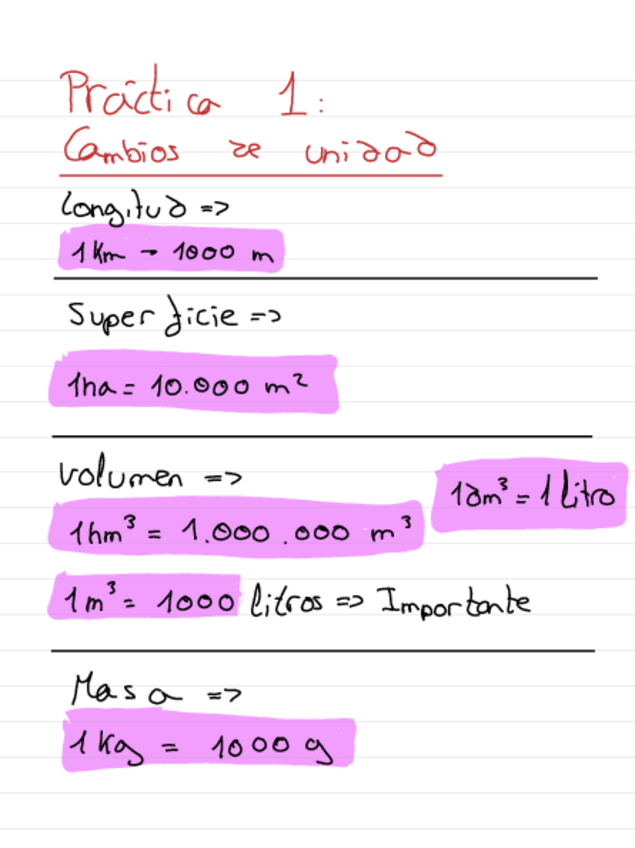 Práctica 1:
Cambios de unidad
Longitud =>
1 Km - 1000 m
Superficie =>
1ha = 10.000 m²
Volumen =>
1dm³ = 1 litro
1hm³ = 1.000.000 m³
1 m³ = 1000 litros => Importante
Masa =>
1 Kg = 1000 g